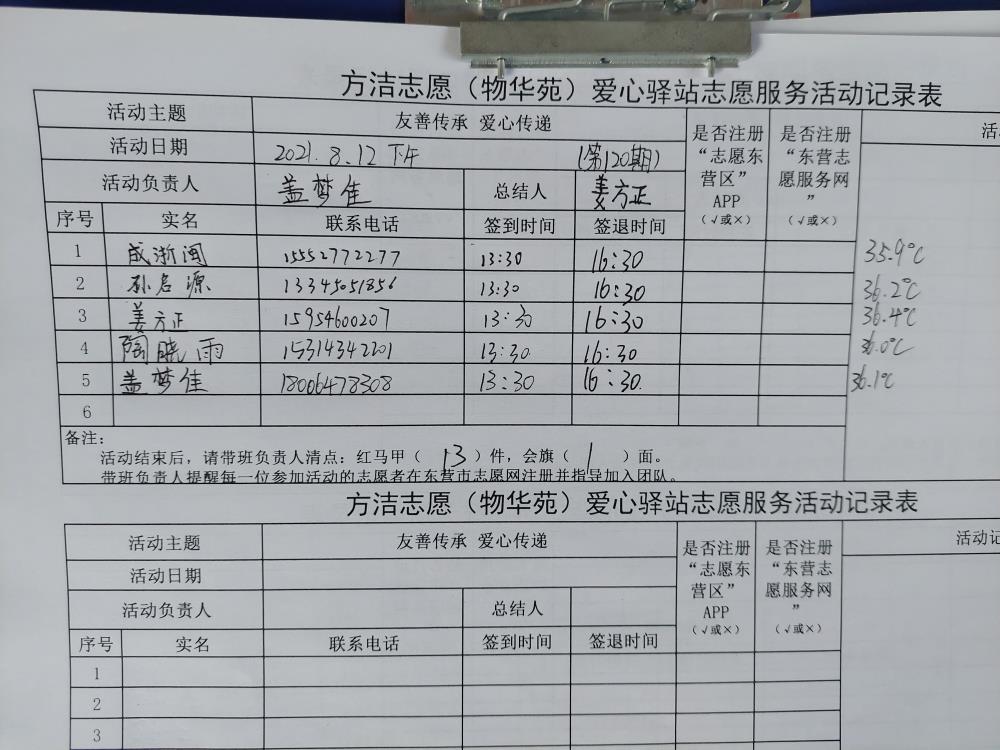 方洁志愿（物华苑）爱心驿站志愿服务活动记录表
活动主题 友善传承 爱心传递 是否注册“志愿东营区”APP（√或×） 是否注册“东营志愿服务网”（√或×） 活
活动日期 2021.8.12下午 （第120期）
活动负责人 盖梦佳 总结人 姜方正
序号 实名 联系电话 签到时间 签退时间
1 成浙闽 15552772277 13:30 16:30 35.9℃
2 孙启源 13345051856 13:30 16:30 36.2℃
3 姜方正 15954600207 13:30 16:30 36.4℃
4 陶晓雨 15314342201 13:30 16:30 36.0℃
5 盖梦佳 18006478308 13:30 16:30. 36.1℃
6
备注：
活动结束后，请带班负责人清点：红马甲（ 13 ）件，会旗（ 1 ）面。
带班负责人提醒每一位参加活动的志愿者在东营市志愿网注册并指导加入团队。
方洁志愿（物华苑）爱心驿站志愿服务活动记录表
活动主题 友善传承 爱心传递 是否注册“志愿东营区”APP（√或×） 是否注册“东营志愿服务网”（√或×） 活动记
活动日期
活动负责人 总结人
序号 实名 联系电话 签到时间 签退时间
1
2
3